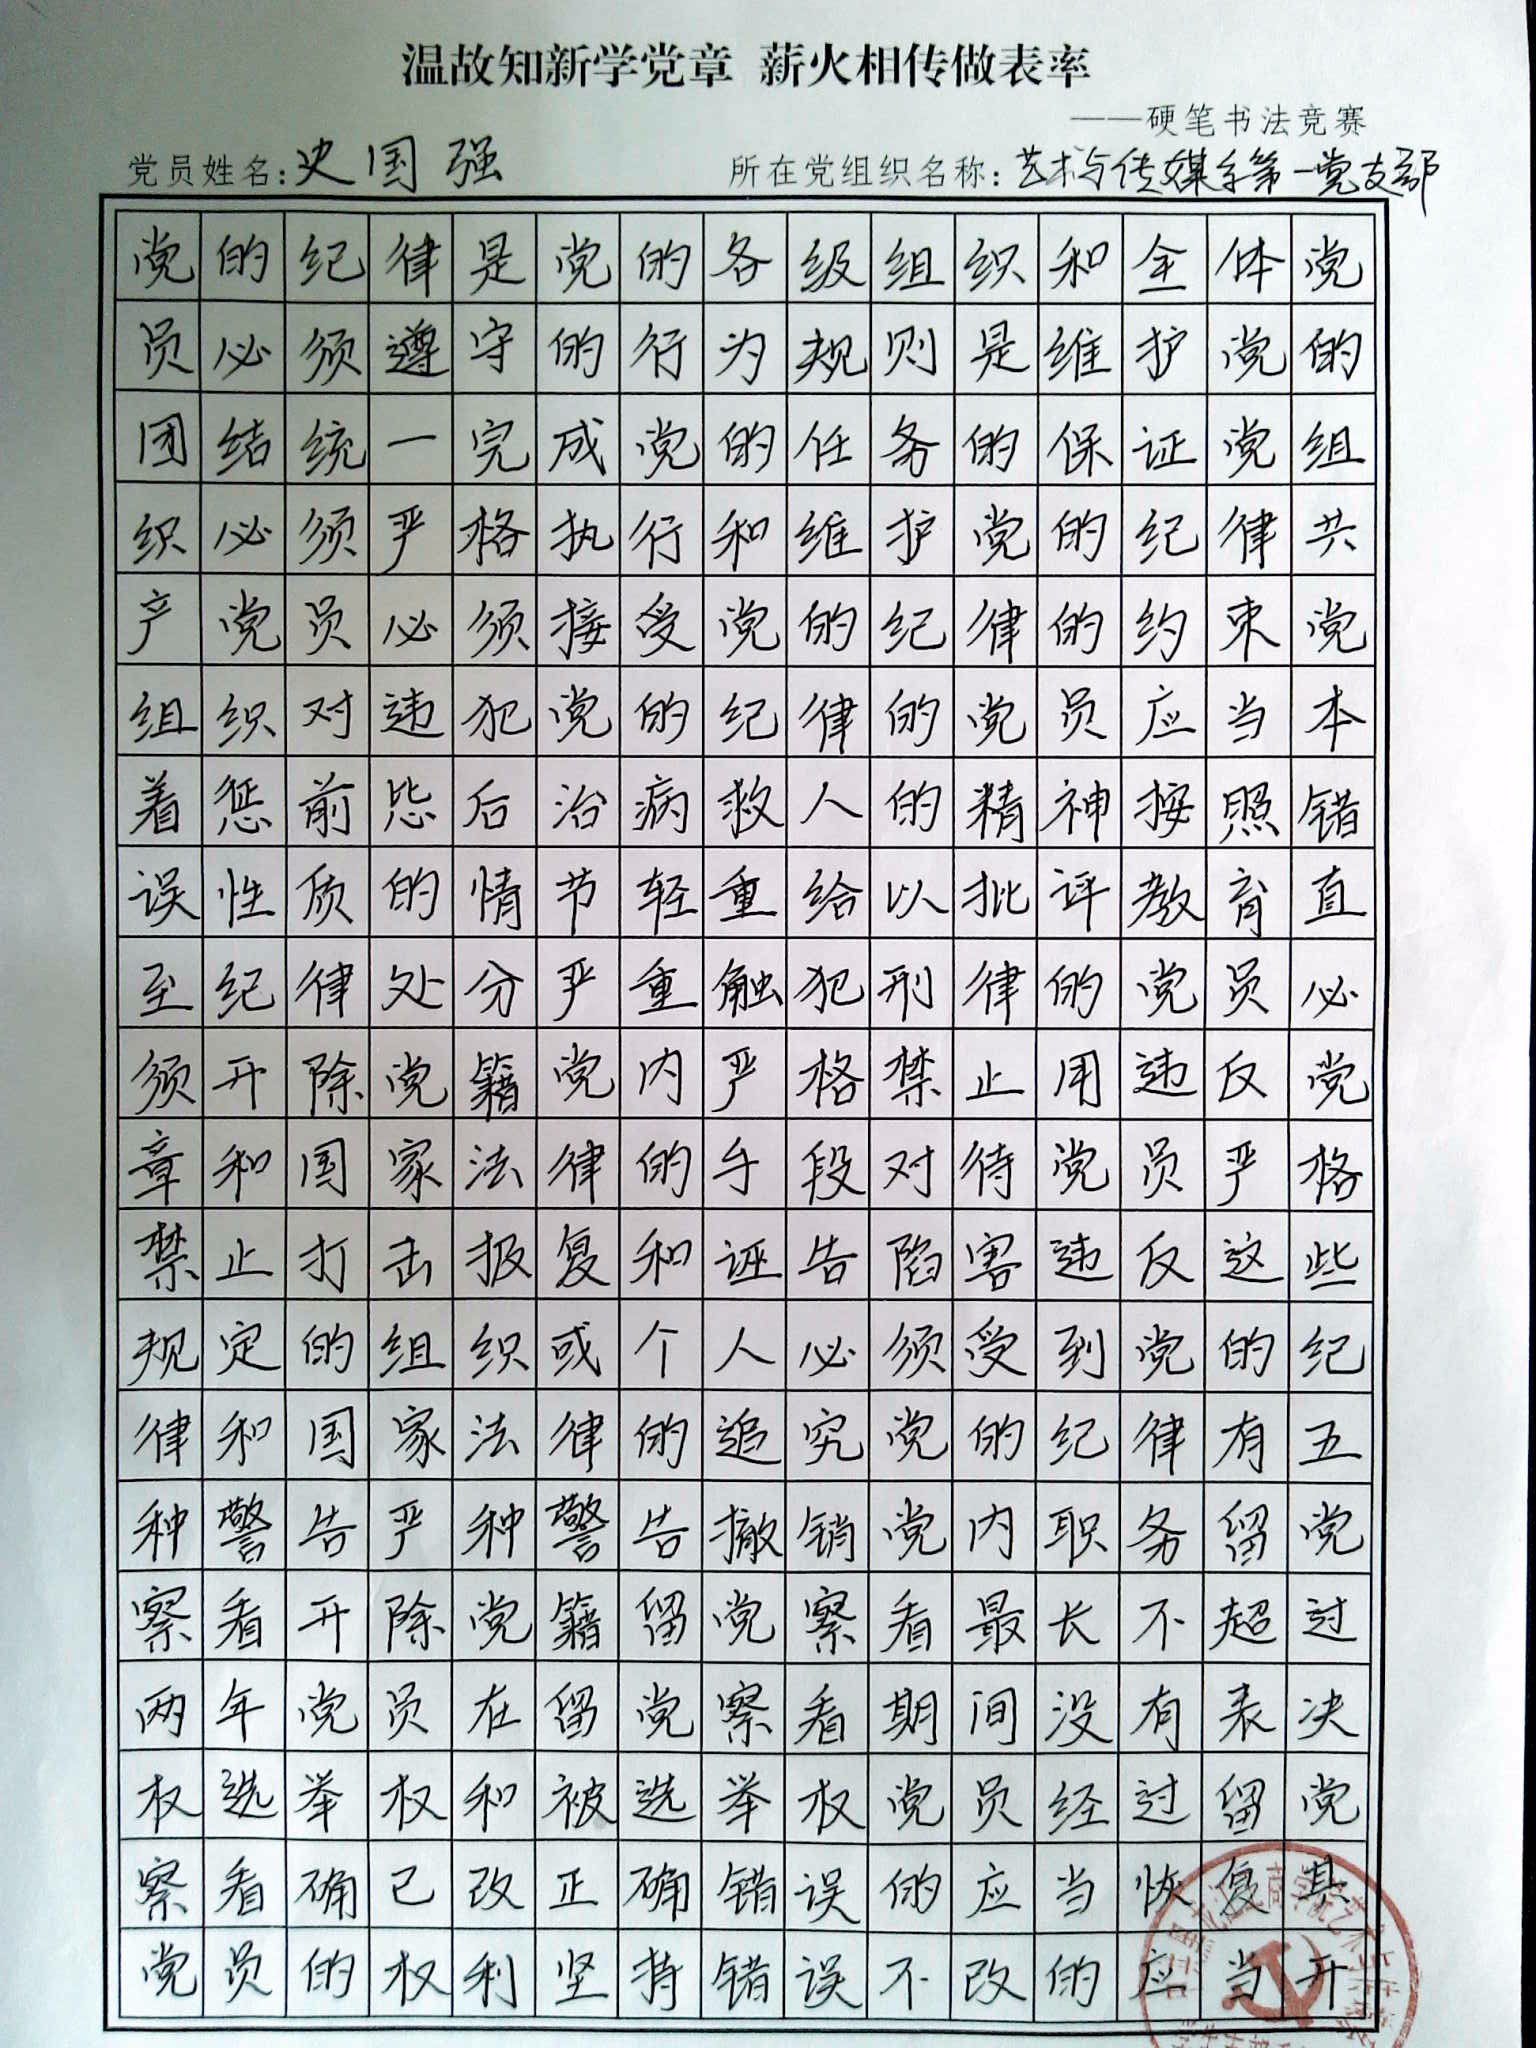 温故知新学党章 薪火相传做表率
——硬笔书法竞赛
党员姓名:史国强 所在党组织名称:艺术与传媒学第一党支部
党的纪律是党的各级组织和全体党
员必须遵守的行为规则是维护党的
团结统一完成党的任务的保证党组
织必须严格执行和维护党的纪律共
产党员必须接受党的纪律的约束党
组织对违犯党的纪律的党员应当本
着惩前毖后治病救人的精神按照错
误性质的情节轻重给以批评教育直
至纪律处分严重触犯刑律的党员必
须开除党籍党内严格禁止用违反党
章和国家法律的手段对待党员严格
禁止打击报复和诬告陷害违反这些
规定的组织或个人必须受到党的纪
律和国家法律的追究党的纪律有五
种警告严种警告撤销党内职务留党
察看开除党籍留党察看最长不超过
两年党员在留党察看期间没有表决
权选举权和被选举权党员经过留党
察看确已改正确错误的应当恢复其
党员的权利坚持错误不改的应当开